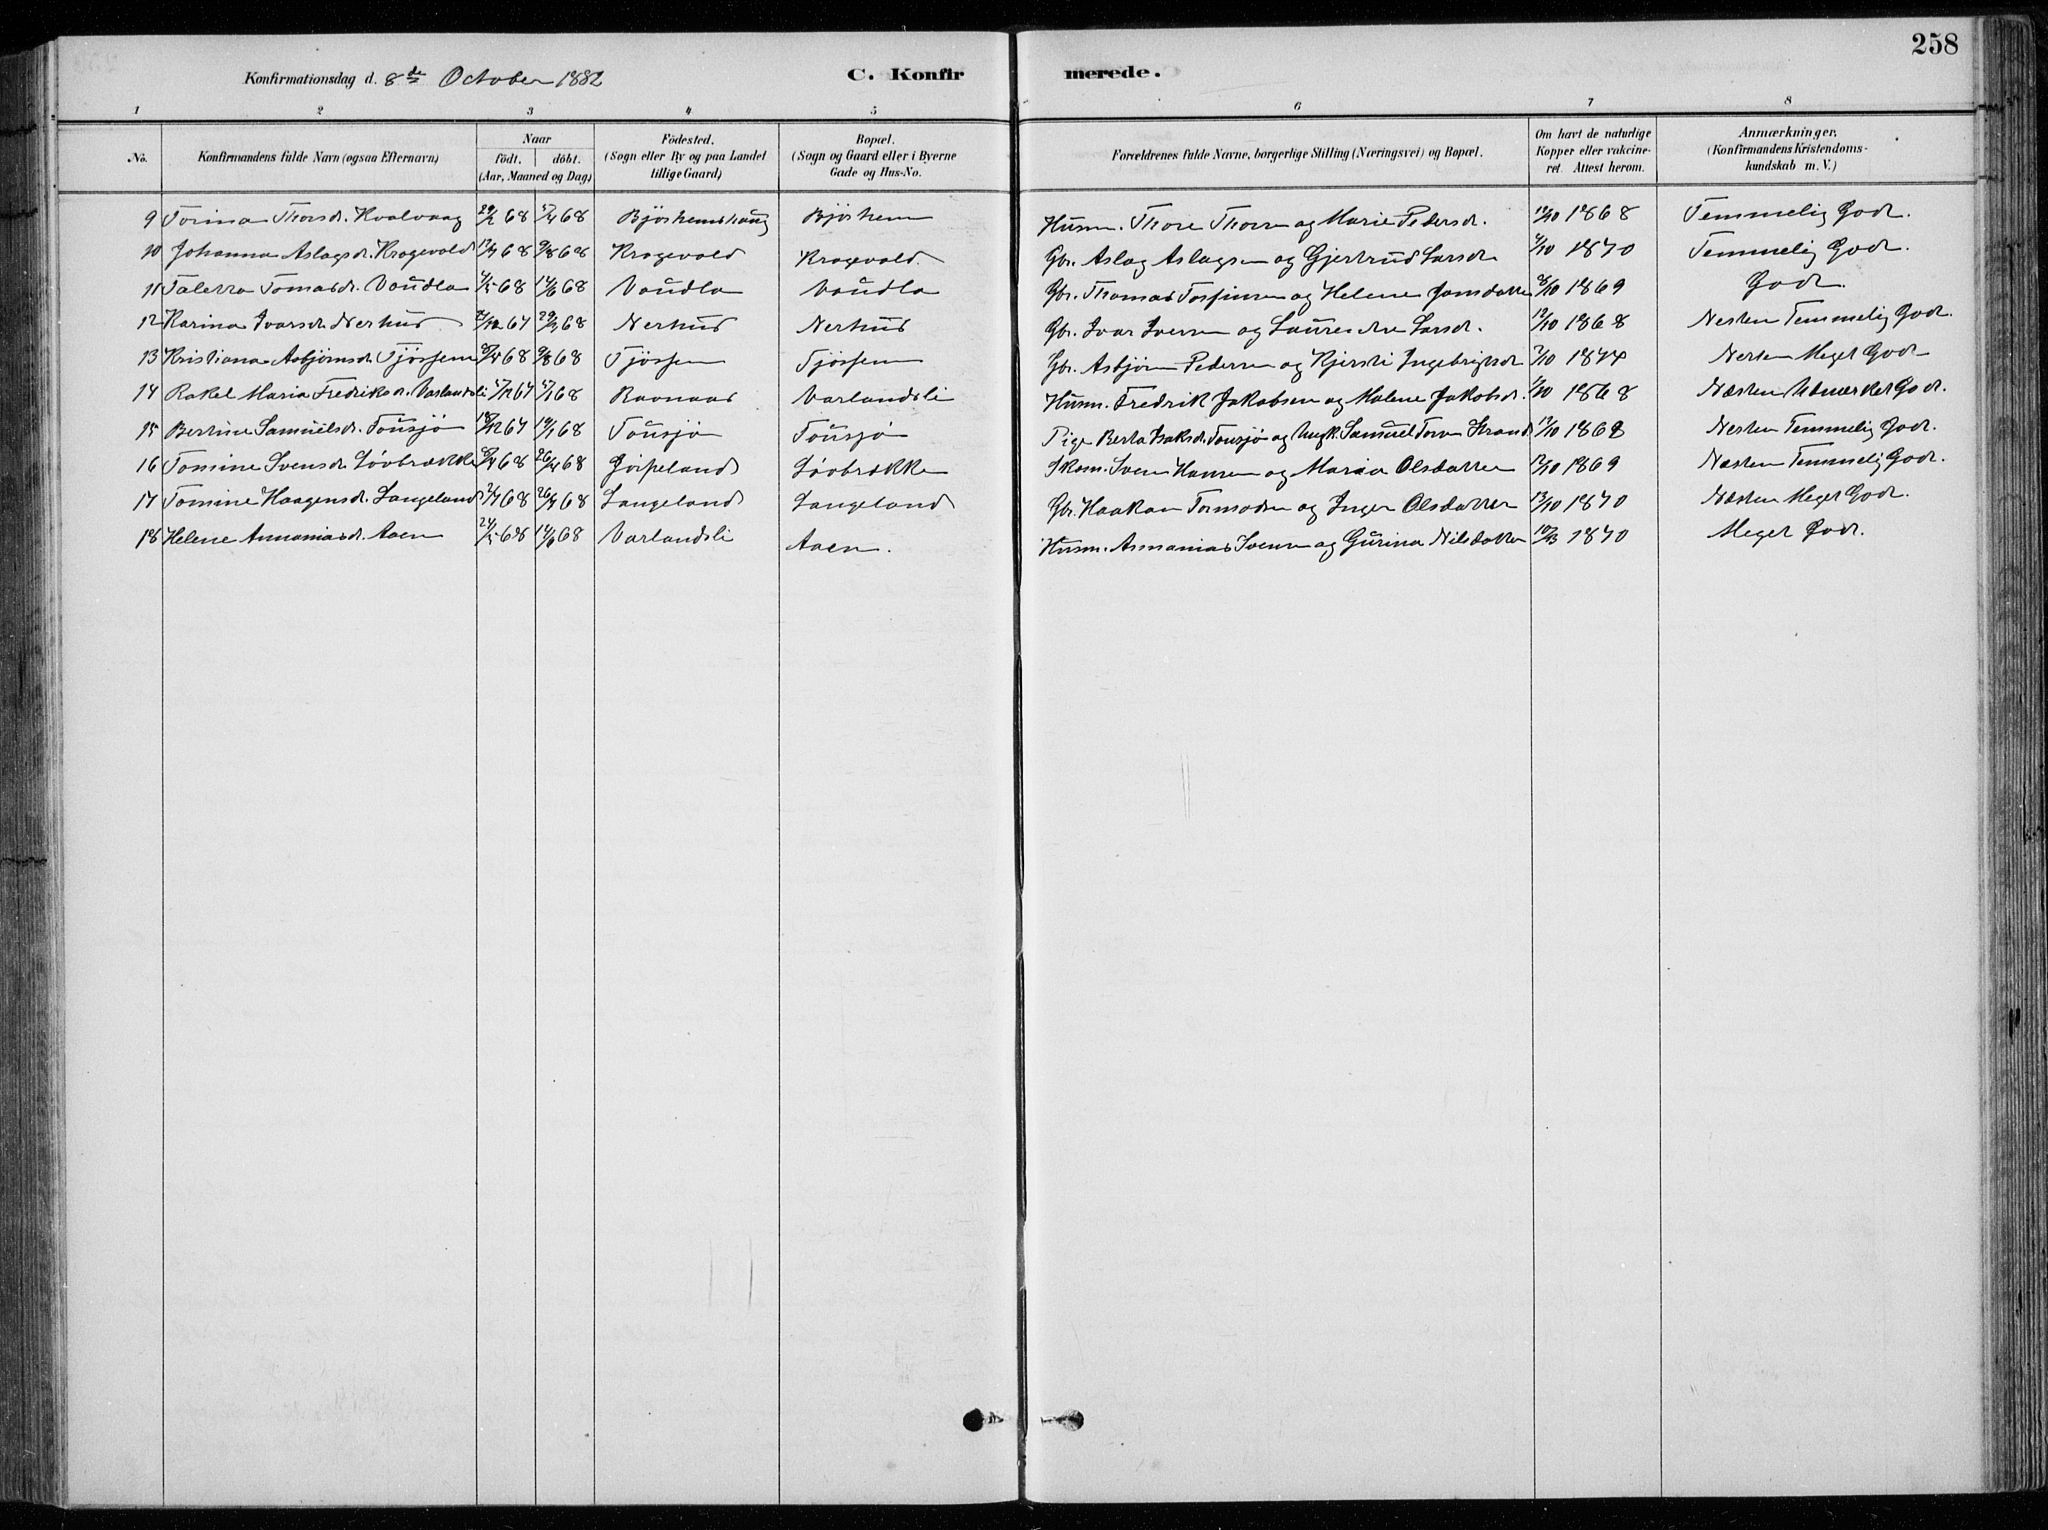 258
Konfirmationsdag d. 8de October 1882
C. Konfirmerede.
1 2 3 4 5 6 7 8
No. Konfirmandens fulde Navn (ogsaa Efternavn) Naar födt. döbt. (Aar, Maaned og Dag) Födested. (Sogn eller By og paa Landet tillige Gaard) Bopæl. (Sogn og Gaard eller i Byerne Gade og Hus-No. Forældrenes fulde Navne, borgerlige Stilling (Næringsvei) og Bopæl. Om havt de naturlige Kopper eller vakcineret. Attest herom. Anmærkninger. (Konfirmandens Kristendomskundskab m. V.)
9 Torina Thorsdr. Hvalvaag 29/2 68 5/4 68 Bjösheimshaug Bjöshem Husm. Thore Thorsen og Marie Pedersd. 12/10 1868 Temmelig God.
10 Johanna Aslagsdr. Kragevold 68 9/8 68 Kragevold Kragevold. Gbr. Aslag Aslagsen og Gjertrud Larsdr 1870 Temmelig God.
11 Taletta Tomasdr. Vaudla 68 14/6 68 Vaudla Vaudla Gbr. Thomas Torfinsen og Helene Jonsdatter 1869 God.
12 Karina Ivarsdr. Nerhus 67 29/3 68 Nerhus Nerhus Gbr. Ivar Iversen og Larsdr. 12/10 1868 Nesten Temmelig God.
13 Kristiana Asbjörnsdr. Tjössem 68 9/8 68 Tjössem Tjössem Gbr. Asbjörn Pedersen og Kjersti Ingebrigtsdr 1874 Nesten Meget God
14 Rakel Maria Fredriksdr. Varlandsli 5/12 67 5/1 68 Ravnaas Varlandsli Husm. Fredrik Jakobsen og Malene Jakobsdr. 1868 Næsten Udmærket God.
15 Bertine Samuelsdr. Tousjö 18/12 67 19/1 68 Tousjö Tousjö Pige Berta Isaksdr. Tousjö og Ungk. Samuel Strand 12/10 1868 Nesten Temmelig God.
16 Tomine Svensdr. Lövbrække 68 26/4 68 Jörpeland Lövbrække Skom. Sven Hansen og Maria Olsdatter 1869 Næsten Temmelig God.
17 Tomine Haagensdr. Langeland 68 26/4 68 Langeland Langeland Gbr. Haakan Tormodsen og Inger Olsdatter 13/10 1870 Næsten Meget God.
18 Helene Annaniasdr. Aaen 24/5 68 14/6 68 Varlandsli Aaen. Husm. Annanias Svensen og Gurina Nilsdatter 1870 Meget God.